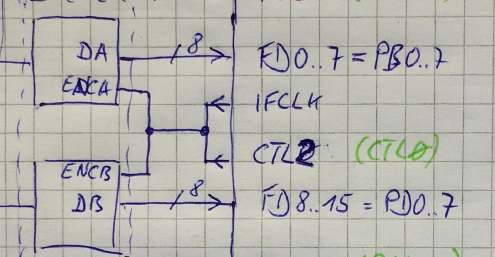 DA 8 FD0..7 = PB0..7
ENCA IFCLK
CTL2 (CTL0)
ENCB
DB 8 FD8..15 = PD0..7